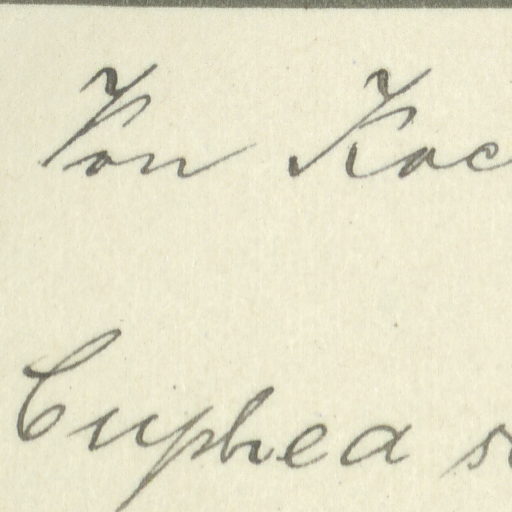 Von Koc
Cuphea